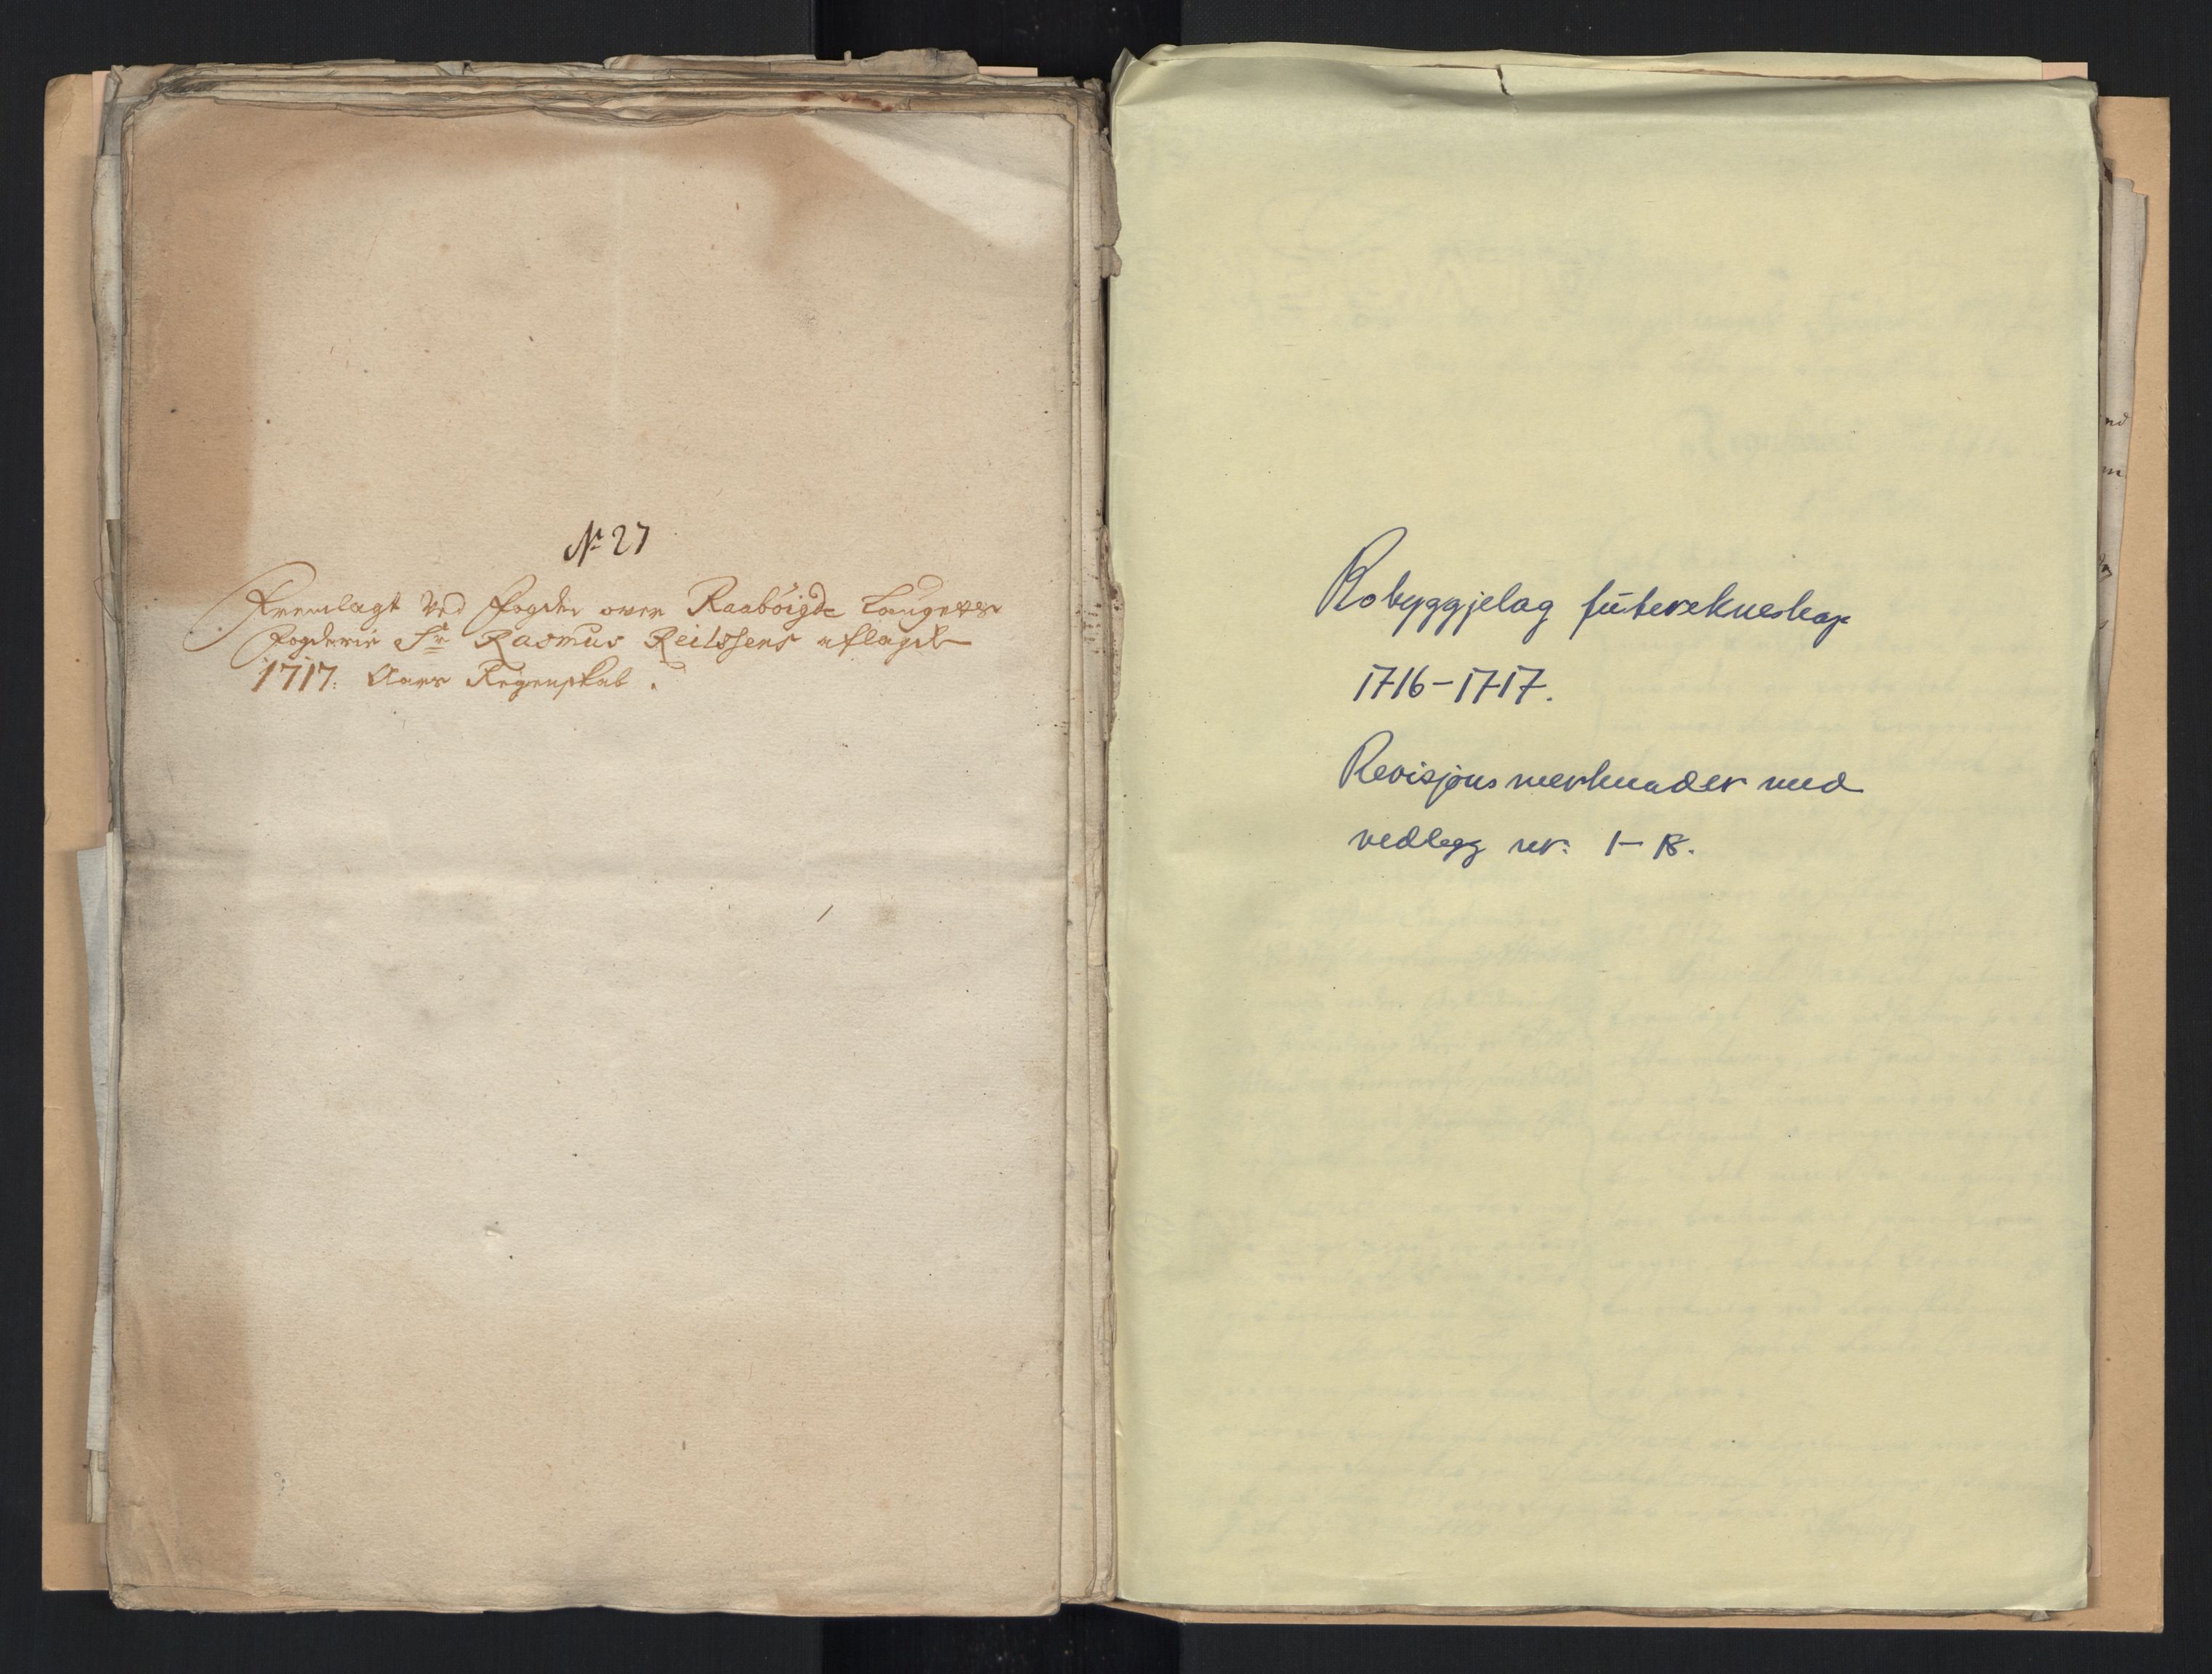 No 27
Fremlagt Ved Fogden over Raabøigde Laugets
Fogderie Sr Rasmus Reilssens aflagde
1717. Aars Regenskab.
Robyggjelag futerekneskap
1716-1717.
Revisjonsmerknader med
vedlegg nr. 1-18.